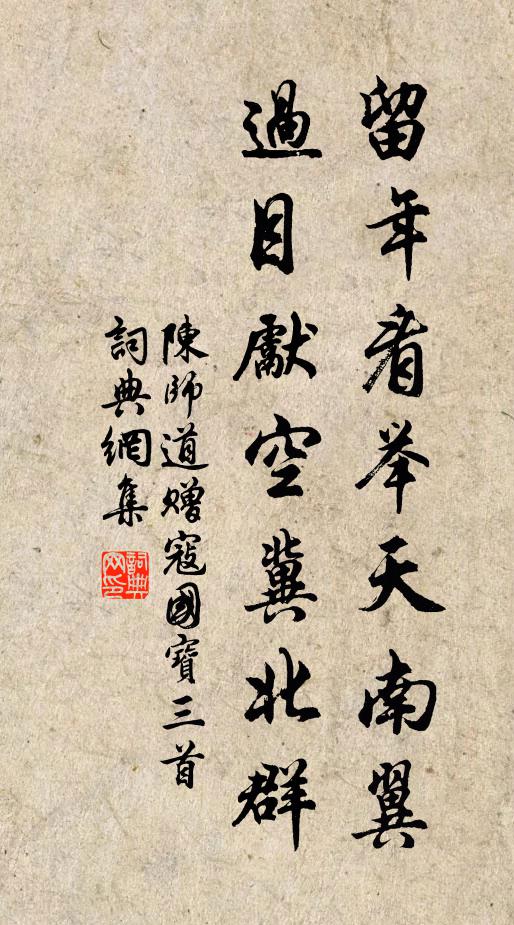 留年看举天南翼
過目獻空冀北群
陳師道贈寇國寶三首
詞典網集
詞典网印